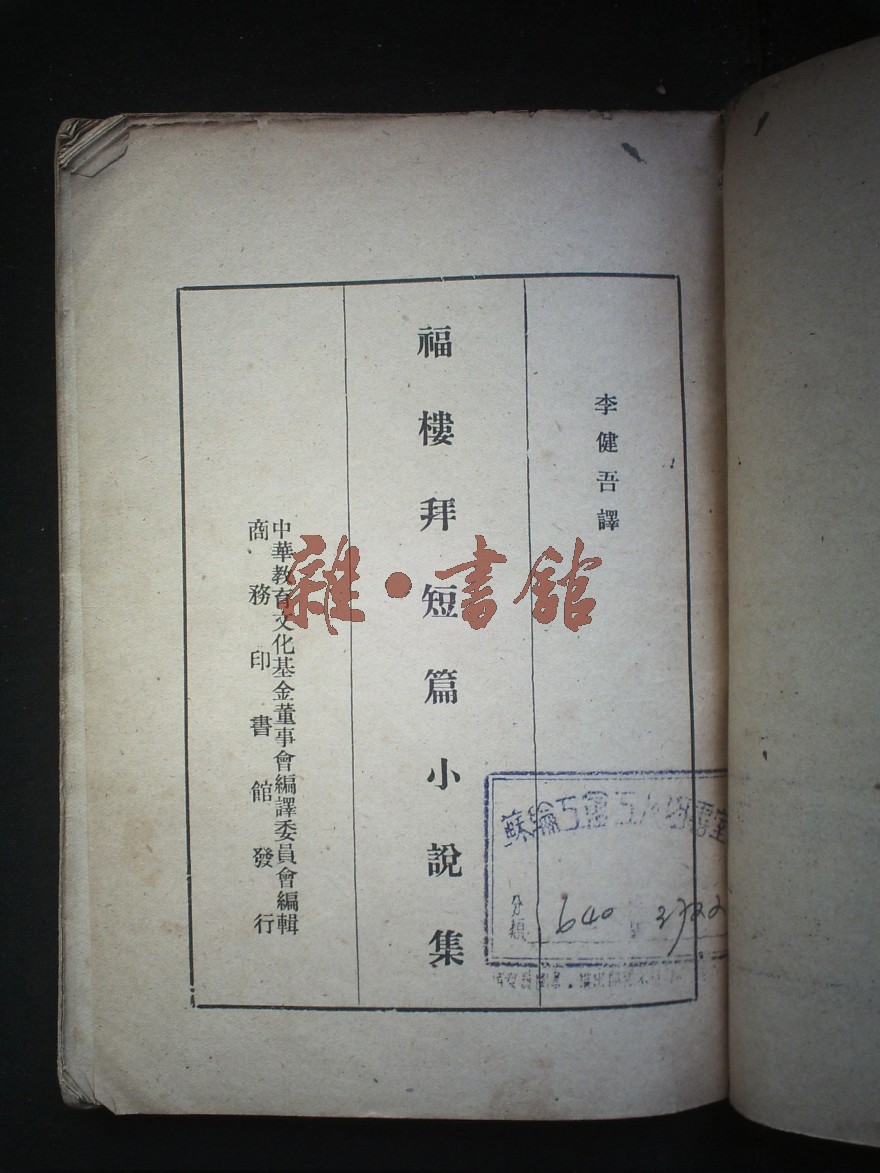 李健吾譯
福樓拜短篇小說集
中華教育文化基金董事會編譯委員會編輯
商務印書館發行
雜·書館
分類 640